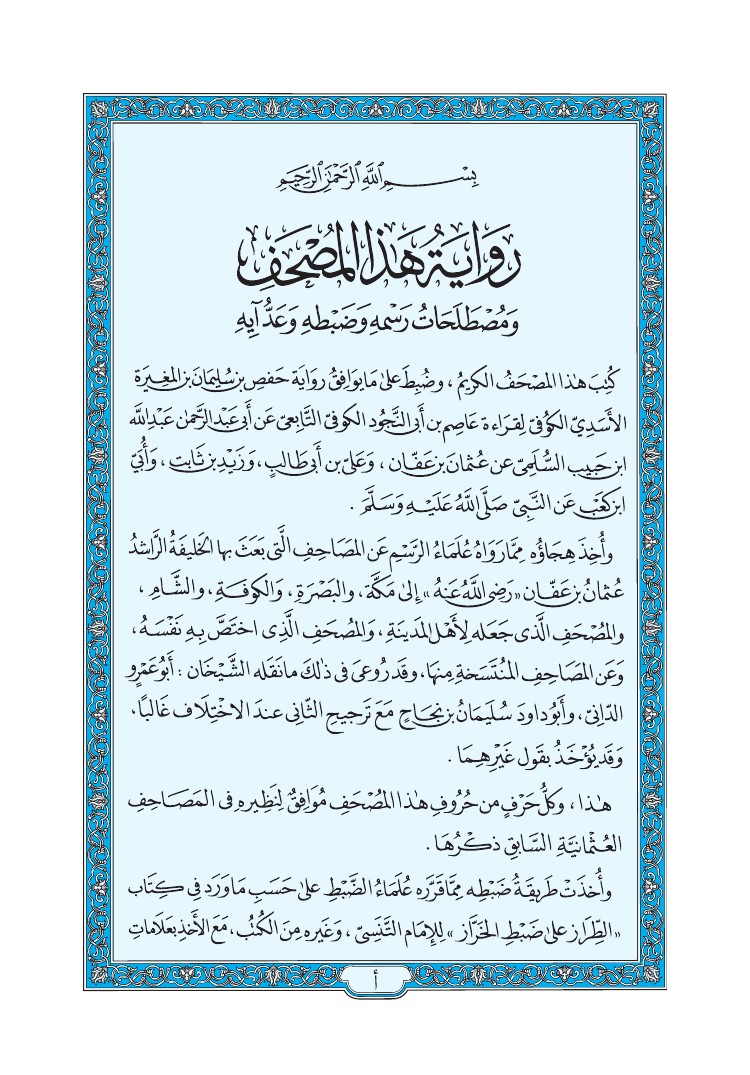 بِسْمِ ٱللَّهِ ٱلرَّحْمَٰنِ ٱلرَّحِيمِ
رِوَايَةُ هَٰذَا المُصْحَفِ
وَمُصْطَلَحَاتُ رَسْمِهِ وَضَبْطِهِ وَعَدِّ آيِهِ
كُتِبَ هَٰذا المُصْحَفُ الكَرِيمُ ، وضُبِطَ عَلىٰ مَا يوَافِقُ رِوايَةَ حَفصِ بنِ سُلَيمَانَ بنِ المُغِيرَةِ
الأَسَدِيِّ الكُوفيِّ لِقِرَاءَةِ عَاصِمِ بنِ أَبي النَّجُودِ الكوفيِّ التَّابِعيِّ عَن أَبي عَبْدِ الرَّحْمٰنِ عَبْدِ اللَّهِ
ابنِ حَبيبٍ السُّلَمِيِّ عن عُثمَانَ بنِ عَفَّان ، وَعَليِّ بنِ أَبي طَالبٍ، وَزَيدِ بنِ ثَابتٍ ، وَأُبيِّ
ابنِ كَعْبٍ عَن النَّبيِّ صَلَّى اللَّهُ عَلَيْهِ وَسَلَّمَ .
وأُخِذَ هِجَاؤُه مِمَّا رَوَاهُ عُلَمَاءُ الرَّسْمِ عَن المَصَاحِفِ الَّتي بَعَثَ بهَا الخَليفَةُ الرَّاشدُ
عُثمانُ بنُ عَفَّان «رَضِيَ اللَّهُ عَنهُ» إِلىٰ مَكَّةَ، والبَصْرَةِ، وَالكوفَةِ ، والشَّامِ ،
والمُصْحَفِ الَّذي جَعَلَه لِأَهْلِ المَدينَةِ ، وَالمُصحَفِ الَّذِي اختَصَّ بِهِ نَفْسَهُ ،
وَعَن المَصَاحِفِ المُنْتَسَخَةِ مِنهَا، وقَد رُوعيَ في ذٰلكَ مَا نَقَلَه الشَّيْخَان : أَبُو عَمْرٍو
الدَّانيّ، وأَبُو دَاودَ سُلَيمَانُ بنُ نجَاحٍ مَعَ تَرجيحِ الثَّاني عندَ الاختِلَاف غَالبًا،
وَقَد يُؤْخَذُ بقَولِ غَيْرِهِمَا .
هٰذا ، وَكلُّ حَرْفٍ من حُرُوفِ هٰذا المُصْحَفِ مُوَافِقٌ لِنَظِيرِهِ في المَصَاحِفِ
العُثْمَانيَّةِ السَّابقِ ذكْرُهَا .
وأُخذَتْ طَريقَةُ ضَبْطِه مِمَّا قَرَّرَه عُلَمَاءُ الضَّبْطِ عَلىٰ حَسَبِ مَا وَرَدَ في كِتَابِ
«الطِّرَاز عَلىٰ ضَبْطِ الخَرَّاز» لِلإِمَام التَّنَسيِّ ، وَغَيرِه مِنَ الكُتُبِ، مَعَ الأَخذِ بعَلَامَاتِ
أ